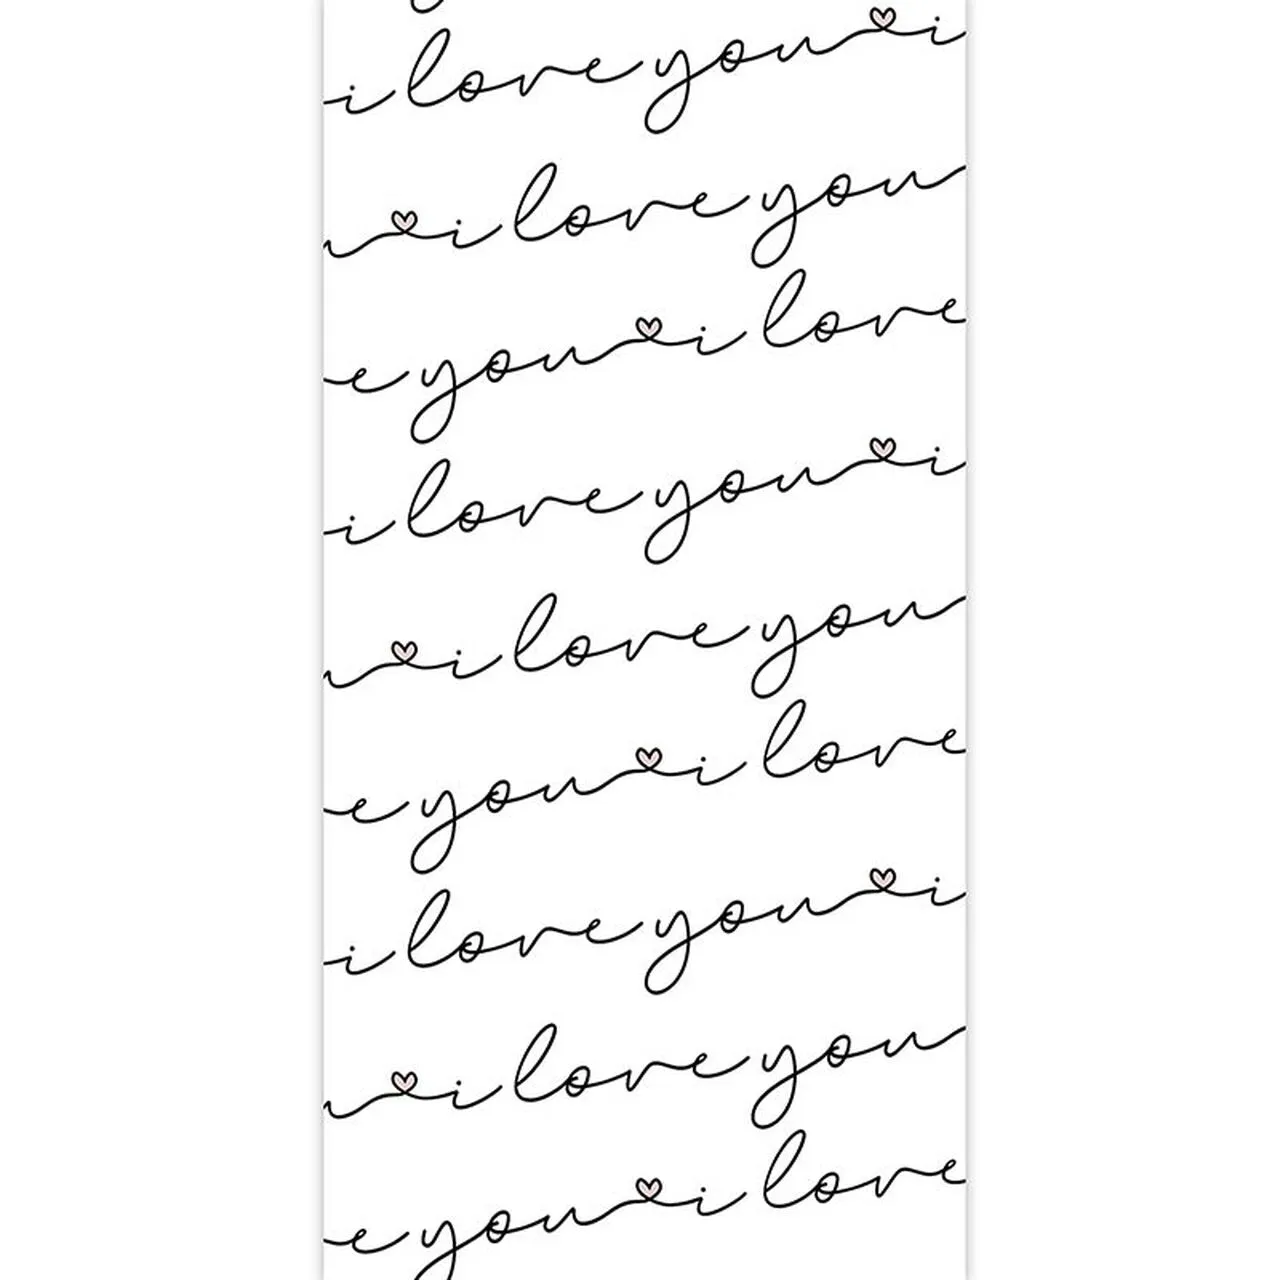 i love you i
i love you
e you i love
i love you i
i love you
e you i love
i love you i
i love you
e you i love